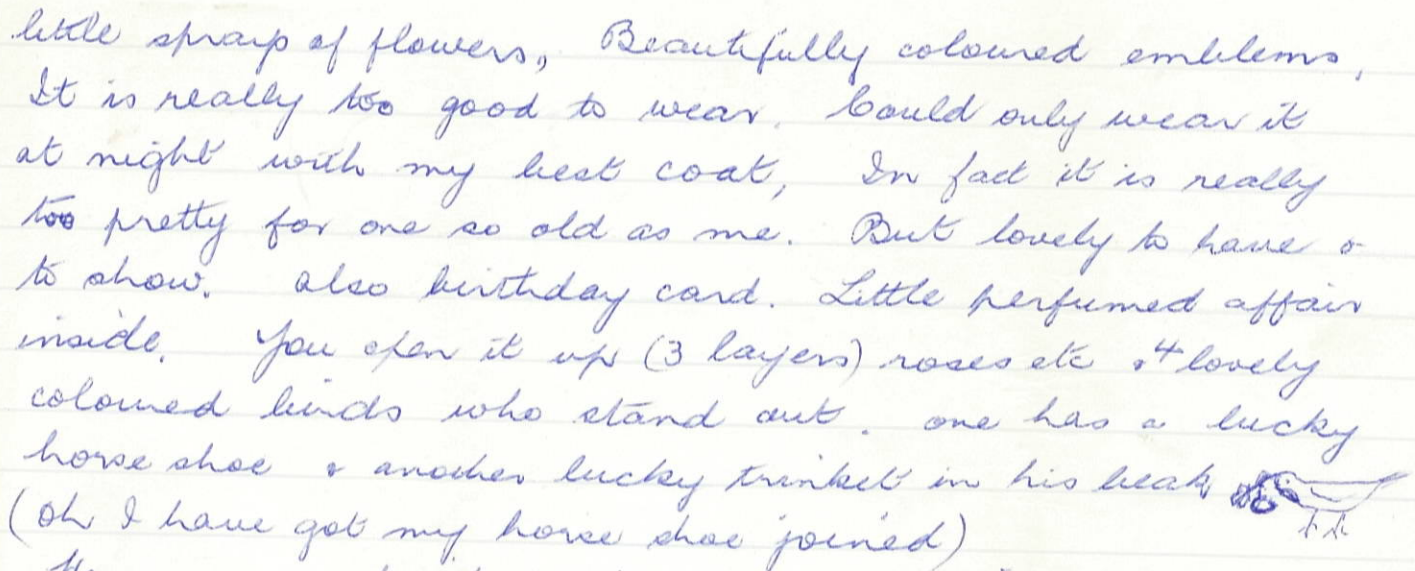 little sprays of flowers, Beautifully coloured emblems,
It is really too good to wear. Could only wear it
at night with my best coat, In fact it is really
too pretty for one so old as me. But lovely to have &
to show. Also birthday card. Little perfumed affair
inside. You open it up (3 layers) roses etc & 4 lovely
coloured birds who stand out. one has a lucky
horse shoe & another lucky trinket in his beak
(Oh I have got my horse shoe joined)